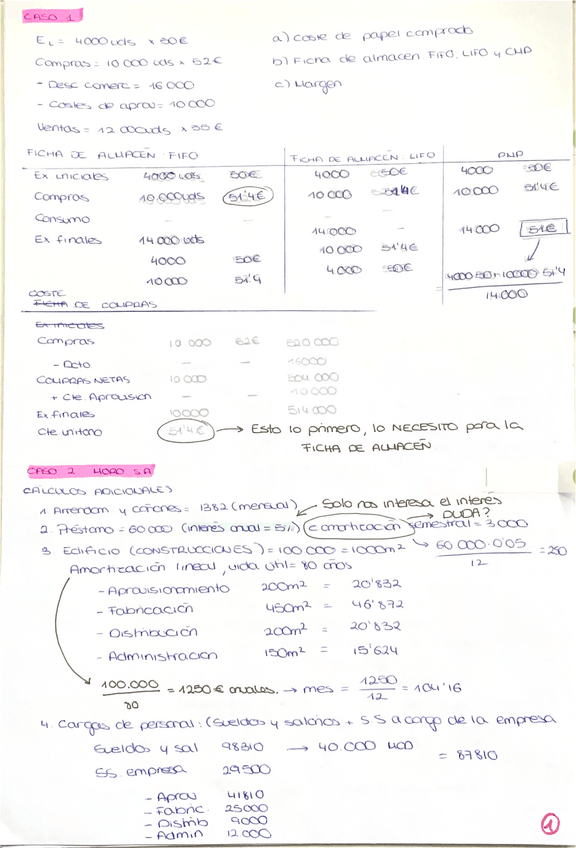 CASO 1
EI = 4000 uds x 50€
a) coste de papel comprado
Compras = 10 000 uds x 52€
b) Ficha de almacen FIFO, LIFO y CMP
- Desc comerc = 16 000
c) Margen
- Costes de aprov = 10 000
Ventas = 12 000 uds x 55€
FICHA DE ALMACÉN FIFO
FICHA DE ALMACÉN LIFO
PMP
Ex iniciales 4000 uds 50€ 4000 50€ 4000 50€
Compras 10.000 uds 51'4€ 10 000 51'4€ 10 000 51'4€
Consumo - - - -
Ex finales 14.000 uds 14.000 - 14 000 51€
10 000 51'4€
4000 50€ 4 000 50€
10 000 51'4
4000·50+10000·51'4
14.000
COSTE
FICHA DE COMPRAS
Ex iniciales
Compras 10 000 52€ 520 000
- Dcto - - 16000
COMPRAS NETAS 10 000 504 000
+ Cte. Aprovision - - 10 000
Ex finales 10000 514 000
Cte unitario 51'4€ → Esto lo primero, lo NECESITO para la
FICHA DE ALMACÉN
CASO 2 MORO S.A
CALCULOS ADICIONALES
1. Arrendam y cánones = 1382 (mensual)
Solo nos interesa el interés
DUDA?
2. Préstamo = 60 000 (interés anual = 5%) c amortización semestral = 3000
3. Edificio (CONSTRUCCIONES) = 100 000 = 1000m²
60 000·0'05
12
= 250
Amortización lineal, vida útil = 80 años
- Aprovisionamiento 200m² = 20'832
- Fabricación 450m² = 46'872
- Distribución 200m² = 20'832
- Administracion 150m² = 15'624
100.000
80
= 1250€ anuales. → mes =
1250
12
= 104'16
4. Cargas de personal: (Sueldos y salarios + SS a cargo de la empresa
Sueldos y sal 98310 → 40.000 MOD
= 87810
SS. empresa 29500
- Aprov 41810
- Fabric. 25000
- Distrib 9000
- Admin 12000
1